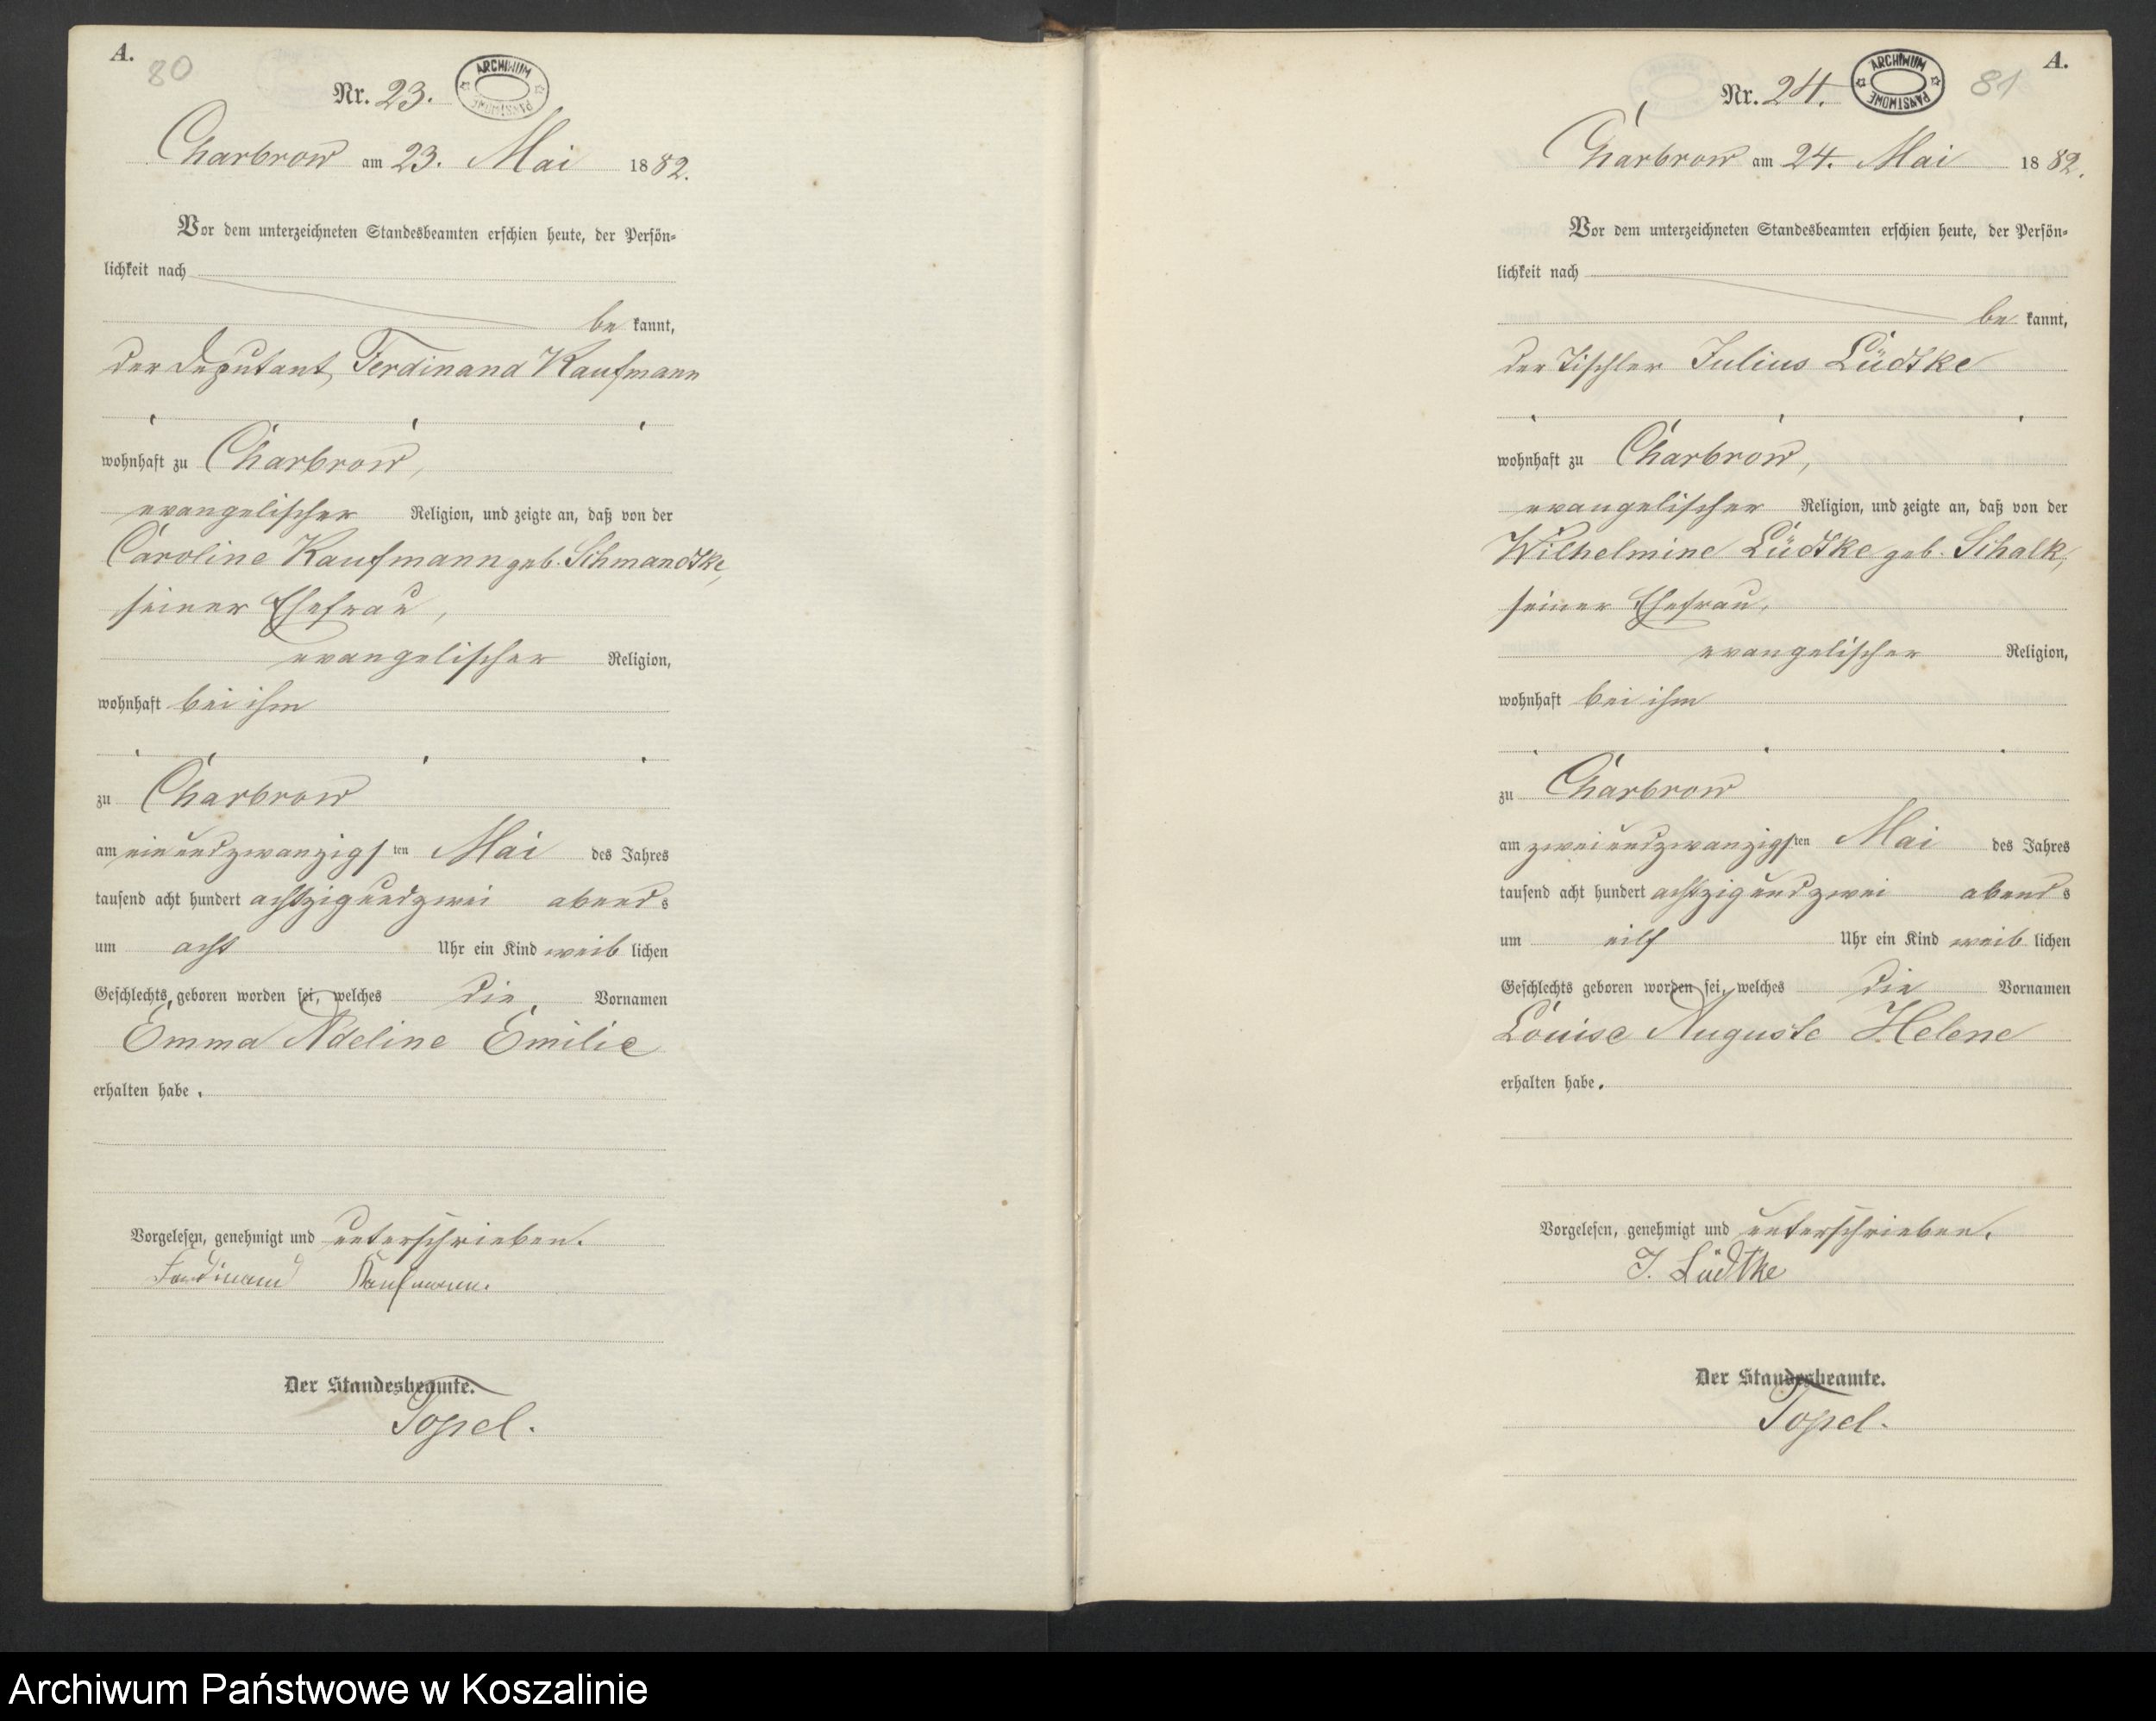 A.
80
Nr. 23.
ARCHIWUM PAŃSTWOWE
Charbrow am 23. Mai 1882.
Vor dem unterzeichneten Standesbeamten erschien heute, der Persön-
lichkeit nach
be kannt,
der Deputant Ferdinand Kaufmann
wohnhaft zu Charbrow,
evangelischer Religion, und zeigte an, daß von der
Caroline Kaufmann geb. Schmandtke,
seiner Ehefrau,
evangelischer Religion,
wohnhaft bei ihm
zu Charbrow
am einundzwanzigsten Mai des Jahres
tausend acht hundert achtzig und zwei abends
um acht Uhr ein Kind weib lichen
Geschlechts geboren worden sei, welches die Vornamen
Emma Adeline Emilie
erhalten habe.
Vorgelesen, genehmigt und unterschrieben.
Ferdinand Kaufmann.
Der Standesbeamte.
Topel.
A.
81
Nr. 24.
ARCHIWUM PAŃSTWOWE
Charbrow am 24. Mai 1882.
Vor dem unterzeichneten Standesbeamten erschien heute, der Persön-
lichkeit nach
be kannt,
der Tischler Julius Lüdtke
wohnhaft zu Charbrow,
evangelischer Religion, und zeigte an, daß von der
Wilhelmine Lüdtke geb. Schalk,
seiner Ehefrau,
evangelischer Religion,
wohnhaft bei ihm
zu Charbrow
am zweiundzwanzigsten Mai des Jahres
tausend acht hundert achtzig und zwei abends
um eilf Uhr ein Kind weib lichen
Geschlechts geboren worden sei, welches die Vornamen
Louise Auguste Helene
erhalten habe.
Vorgelesen, genehmigt und unterschrieben.
J. Lüdtke
Der Standesbeamte.
Topel.
Archiwum Państwowe w Koszalinie